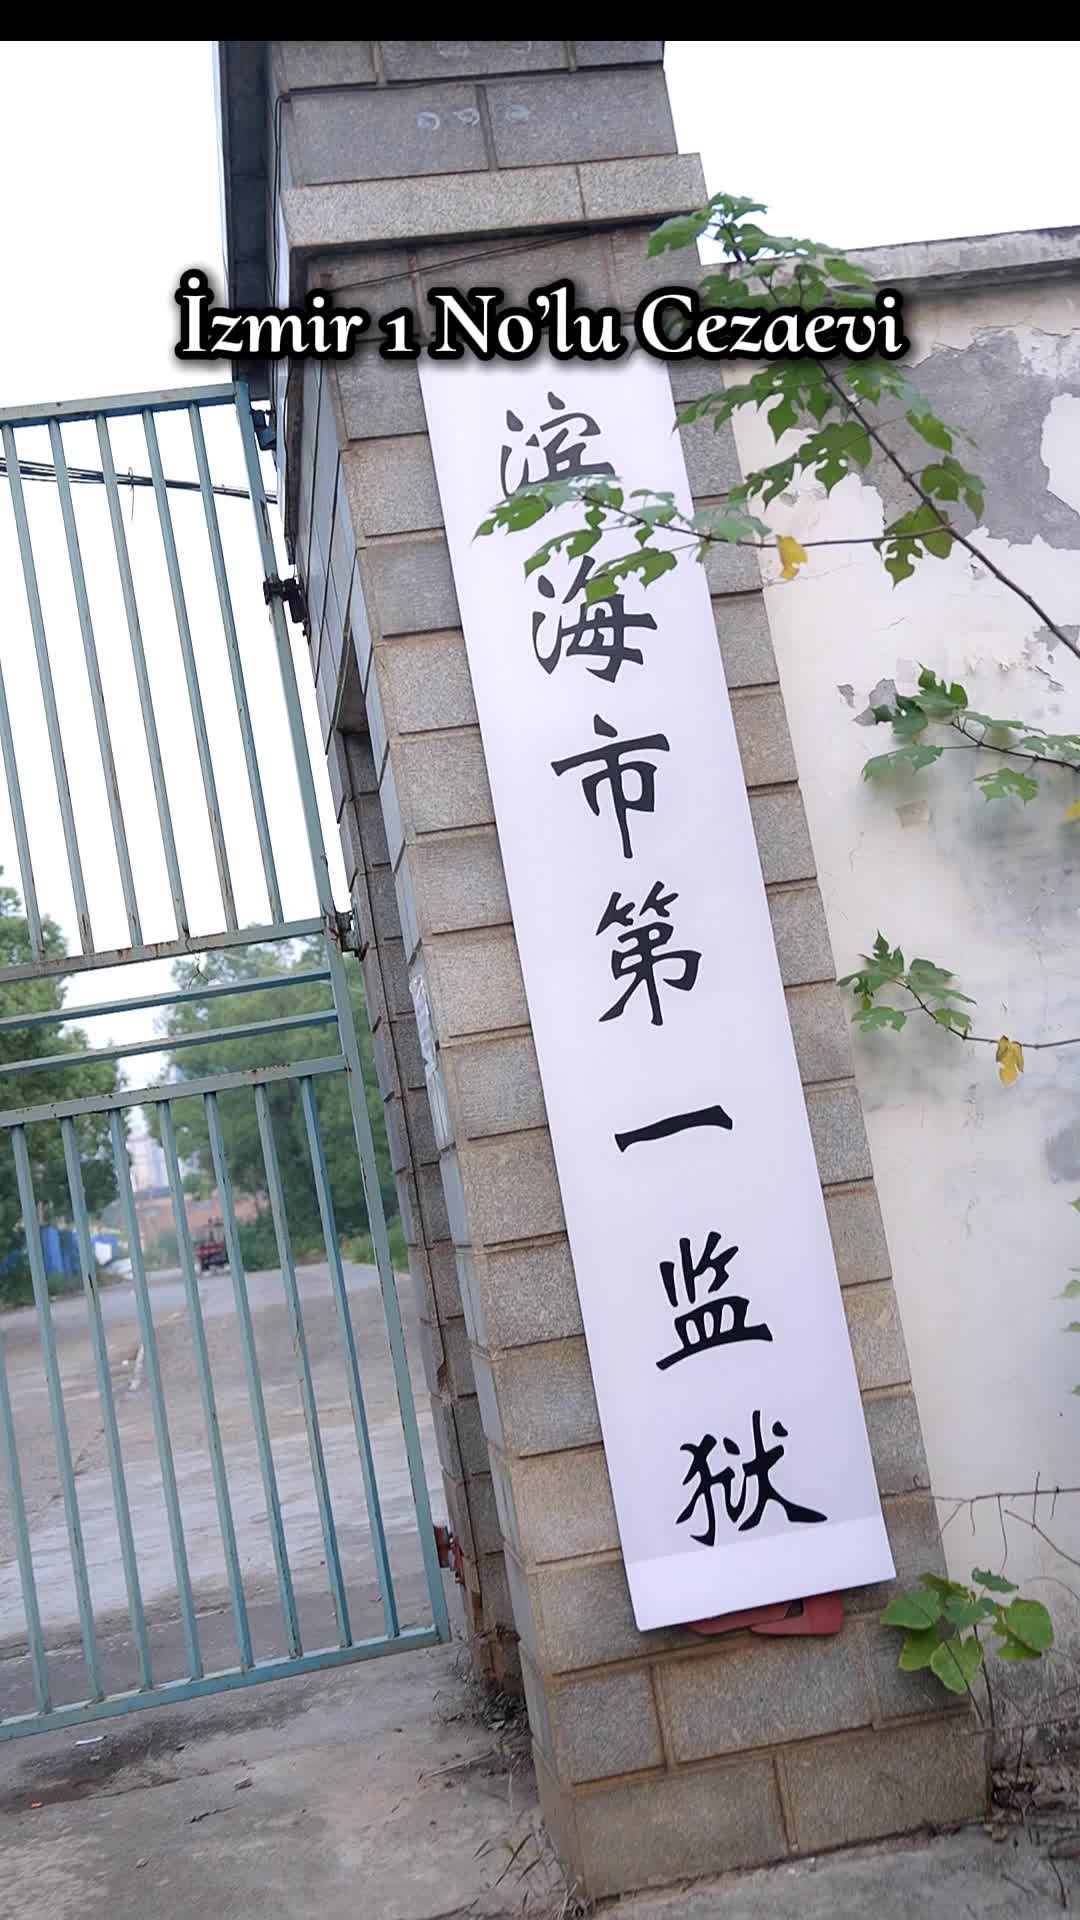 İzmir 1 No’lu Cezaevi
滨海市第一监狱